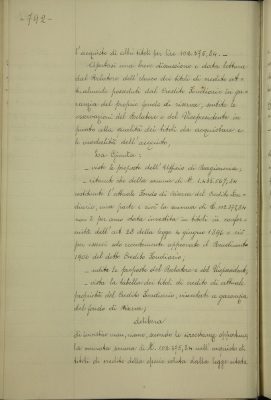 - 792 -
l'acquisto di altri titoli per lire 102.395,24. -
Apertasi una breve discussione e data lettura
dal Relatore dell'elenco dei titoli di credito at-
tualmente posseduti dal Credito Fondiario in ga-
ranzia del proprio fondo di riserva, udite le
osservazioni del Relatore e del Vicepresidente in
punto alla qualità dei titoli da acquistare e
le modalità dell'acquisto,
La Giunta:
- vista la proposta dell'Ufficio di Ragioneria;
- ritenuto che della somma di
costituenti l'attuale Fondo di riserva del Credito Fon-
diario, una parte e cioè la somma di £. 102.395,24
non è per anco investita in titoli in confor-
mità dell'art. 22 della legge 4 giugno 1896 e ciò
per essersi solo recentemente approvato il Rendiconto
1900 del detto Credito Fondiario;
- udite le proposte del Relatore e del Vicepresidente;
- vista la tabella dei titoli di credito di attuale
proprietà del Credito Fondiario, vincolati a garanzia
del fondo di riserva;
delibera
di investire man, mano, secondo le circostanze opportune,
la suddetta somma di £. 102.395,24 nell'acquisto di
titoli di credito della specie voluta dalla legge